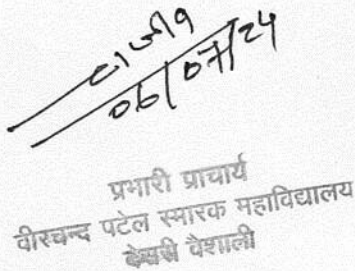 06/07/24
प्रभारी प्राचार्य
वीरचन्द पटेल स्मारक महाविद्यालय
वैशाली